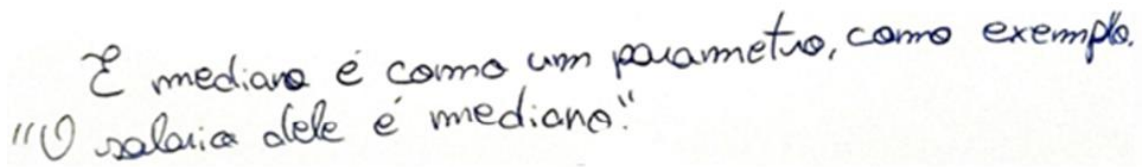 E mediano é como um parametro, como exemplo.
"O salario dele é mediano."